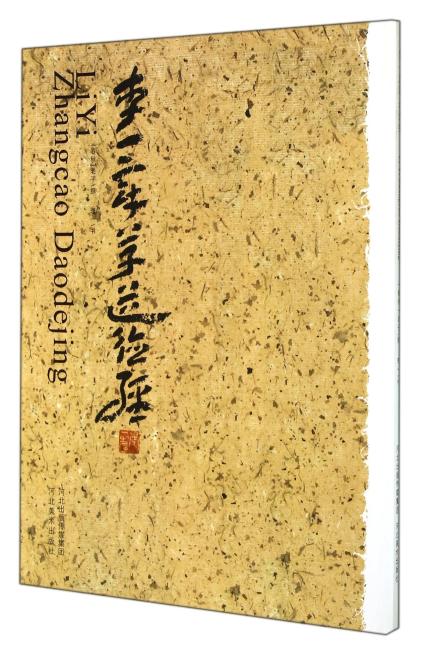 Li Yi
Zhangcao Daodejing
李一章草道德經
河北出版传媒集团
河北美术出版社